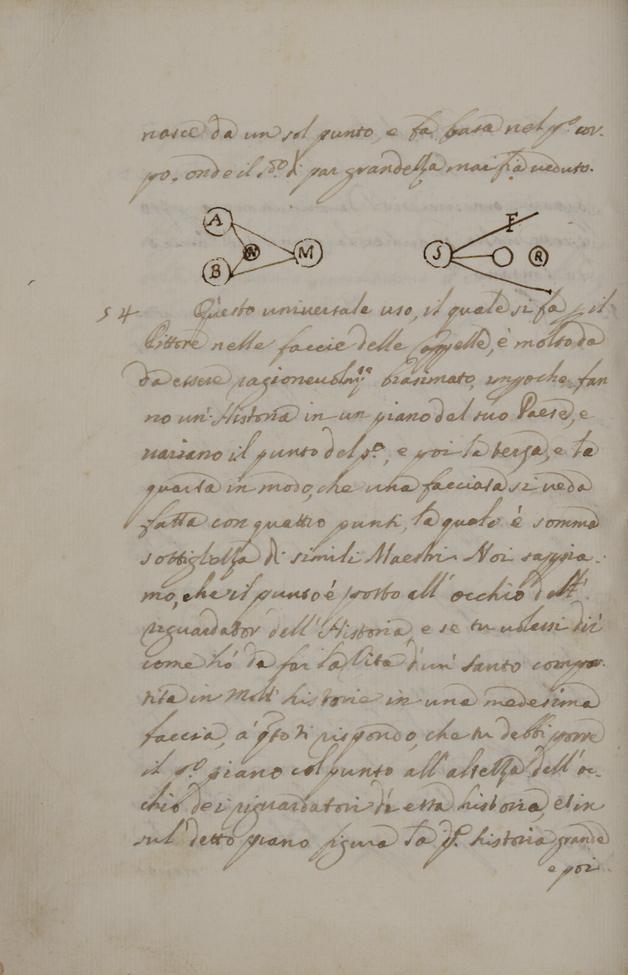 nasce da un sol punto, e fa basa nel p.º cor-
po, onde il 2.do di par grandezza mai fia veduto.
A N M B S F R
54 Questo universale uso, il quale si fa p il
Pittore nelle faccie delle Cappelle, è molto da
da essere ragionevolm.te biasimato, impoche fan
no un' Historia in un piano del suo Paese, e
variano il punto del p.º, e poi la terza, e la
quarta in modo, che una facciata si veda
fatta con quattro punti, la quale è somma
sottiglezza di simili Maestri. Noi sappia-
mo, che il punto è posto all' occhio dell'
riguardator dell' Historia, e se tu volessi dir
come hò da far la Vita d'un' Santo compar-
tita in molt' historie in una medesima
faccia, a' qto ti rispondo, che tu debbi porre
il p.º piano col punto all' altezza dell' oc-
chio dei riguardatori di essa historia, et in
sul' detto piano figura la p.ª historia grande
e poi